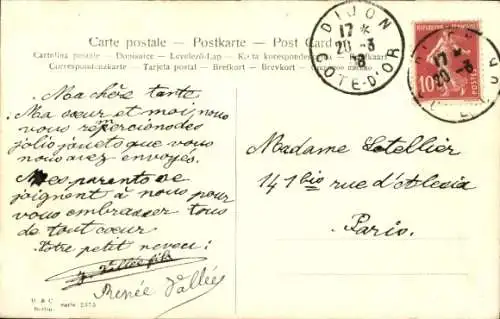 Carte postale - Postkarte - Post Card
Cartolina postale - Dopisnice - Levelező-Lap - Karta korespondencyjna
Correspondenzkarte - Tarjeta postal - Brefkort - Brevkort
DIJON
17 *
20 - 3
COTE-D'OR
17
20 - 3
10
POSTES
Ma chère tante
Ma sœur et moi, nous
vous remercionsdes
jolis jouets que vous
nous avez envoyés.
Mes parents se
joignent à nous pour
vous embrasser tous
de tout cœur
Votre petit neveu:
J. Vallée fils
Renée Vallée
Madame Letellier
141 bis rue d'Alésia
Paris.
Berlin
serie 2375